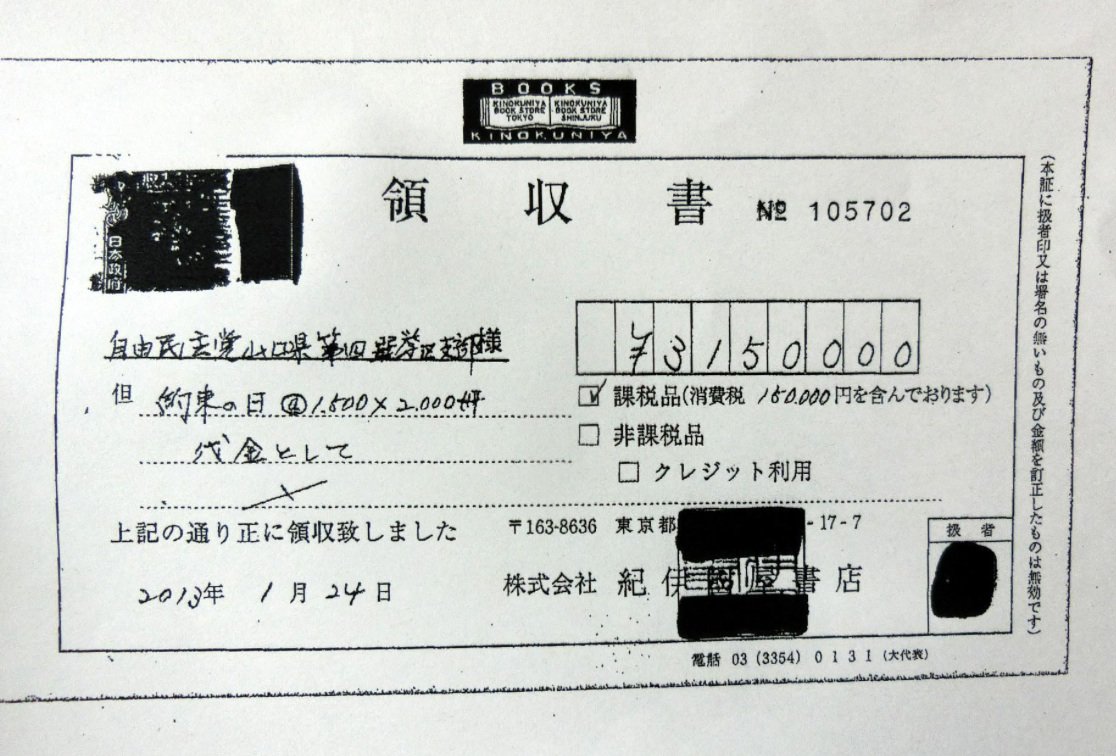 BOOKS
KINOKUNIYA BOOK STORE TOKYO
KINOKUNIYA BOOK STORE SHINJUKU
KINOKUNIYA
領収書 № 105702
日本政府
自由民主党山口県第四選挙区支部様
¥3150000
但 約束の日 @1.500×2.000冊
代金として
課税品(消費税 150.000円を含んでおります)
非課税品
クレジット利用
上記の通り正に領収致しました
2013年 1月 24日
〒163-8636 東京都
-17-7
株式会社 紀伊國屋書店
電話 03 (3354) 0131 (大代表)
扱者
(本証に扱者印又は署名の無いもの及び金額を訂正したものは無効です)